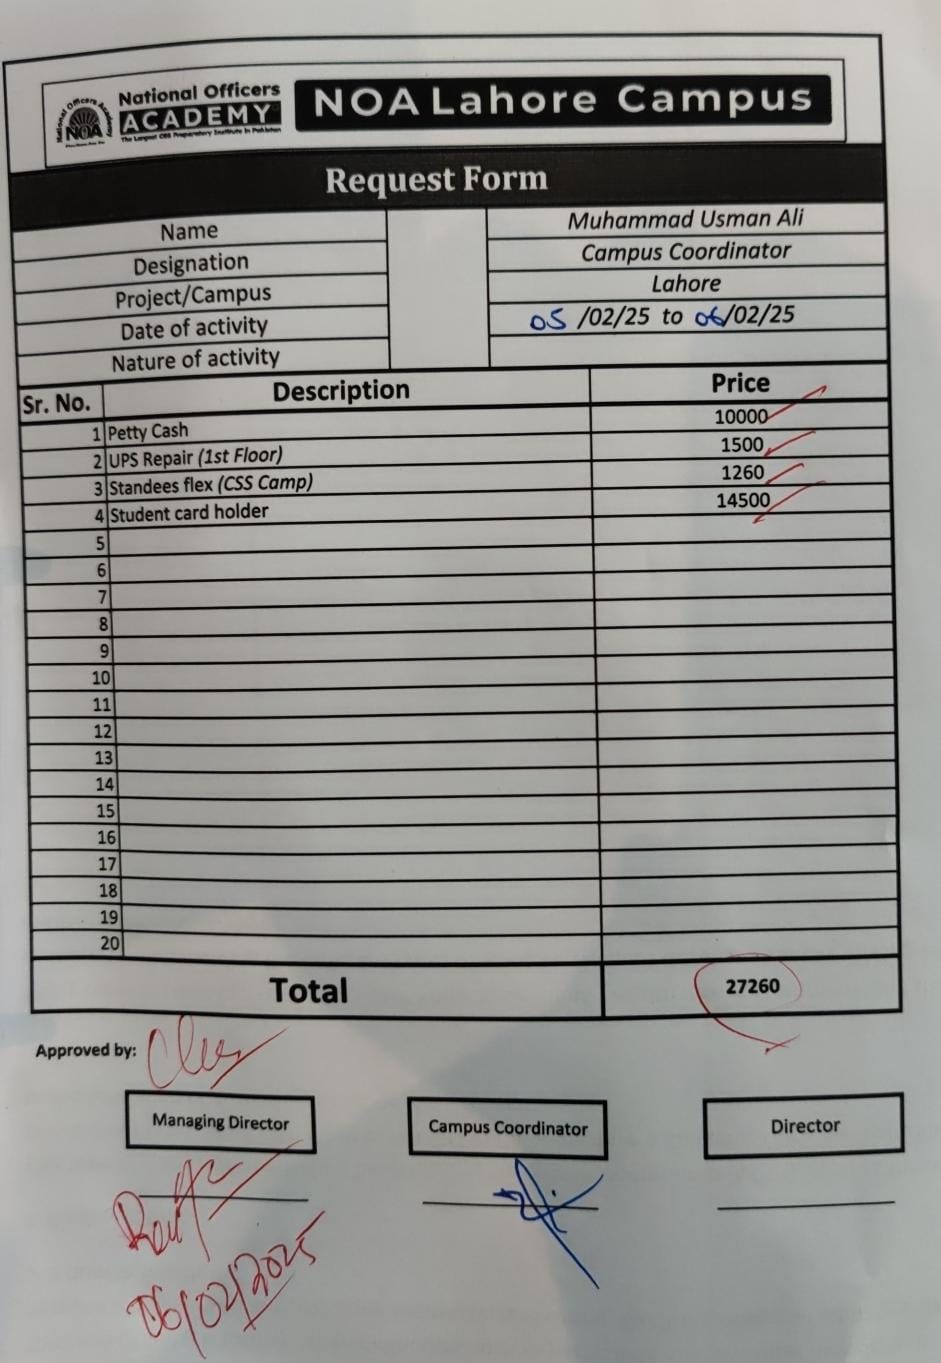 National Officers Academy
NOA
National Officers
ACADEMY
The Largest CSS Preparatory Institute In Pakistan
NOA Lahore Campus
Request Form
Name Muhammad Usman Ali
Designation Campus Coordinator
Project/Campus Lahore
Date of activity 05 /02/25 to 06/02/25
Nature of activity
Sr. No. Description Price
1 Petty Cash 10000
2 UPS Repair (1st Floor) 1500
3 Standees flex (CSS Camp) 1260
4 Student card holder 14500
5
6
7
8
9
10
11
12
13
14
15
16
17
18
19
20
Total 27260
Approved by:
Managing Director Campus Coordinator Director
06/02/2025